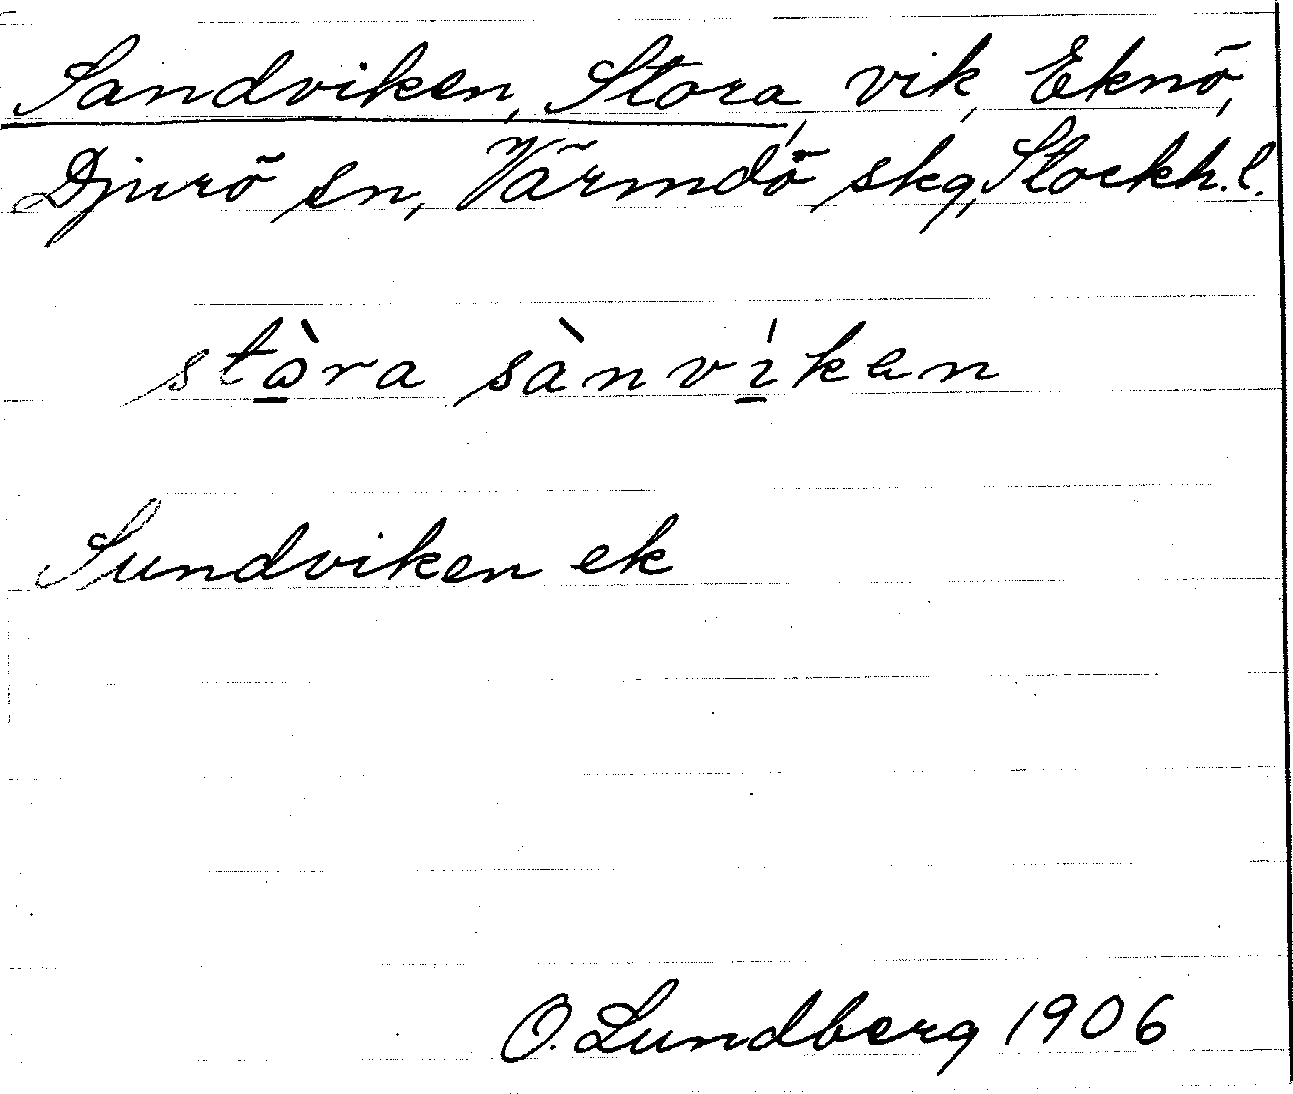 Sandviken, Stora, vik, Eknö,
Djurö sn, Värmdö skg, Stockh. l.
stὼ̱ra sànví̱kɐn
Sundviken ek
O. Lundberg 1906